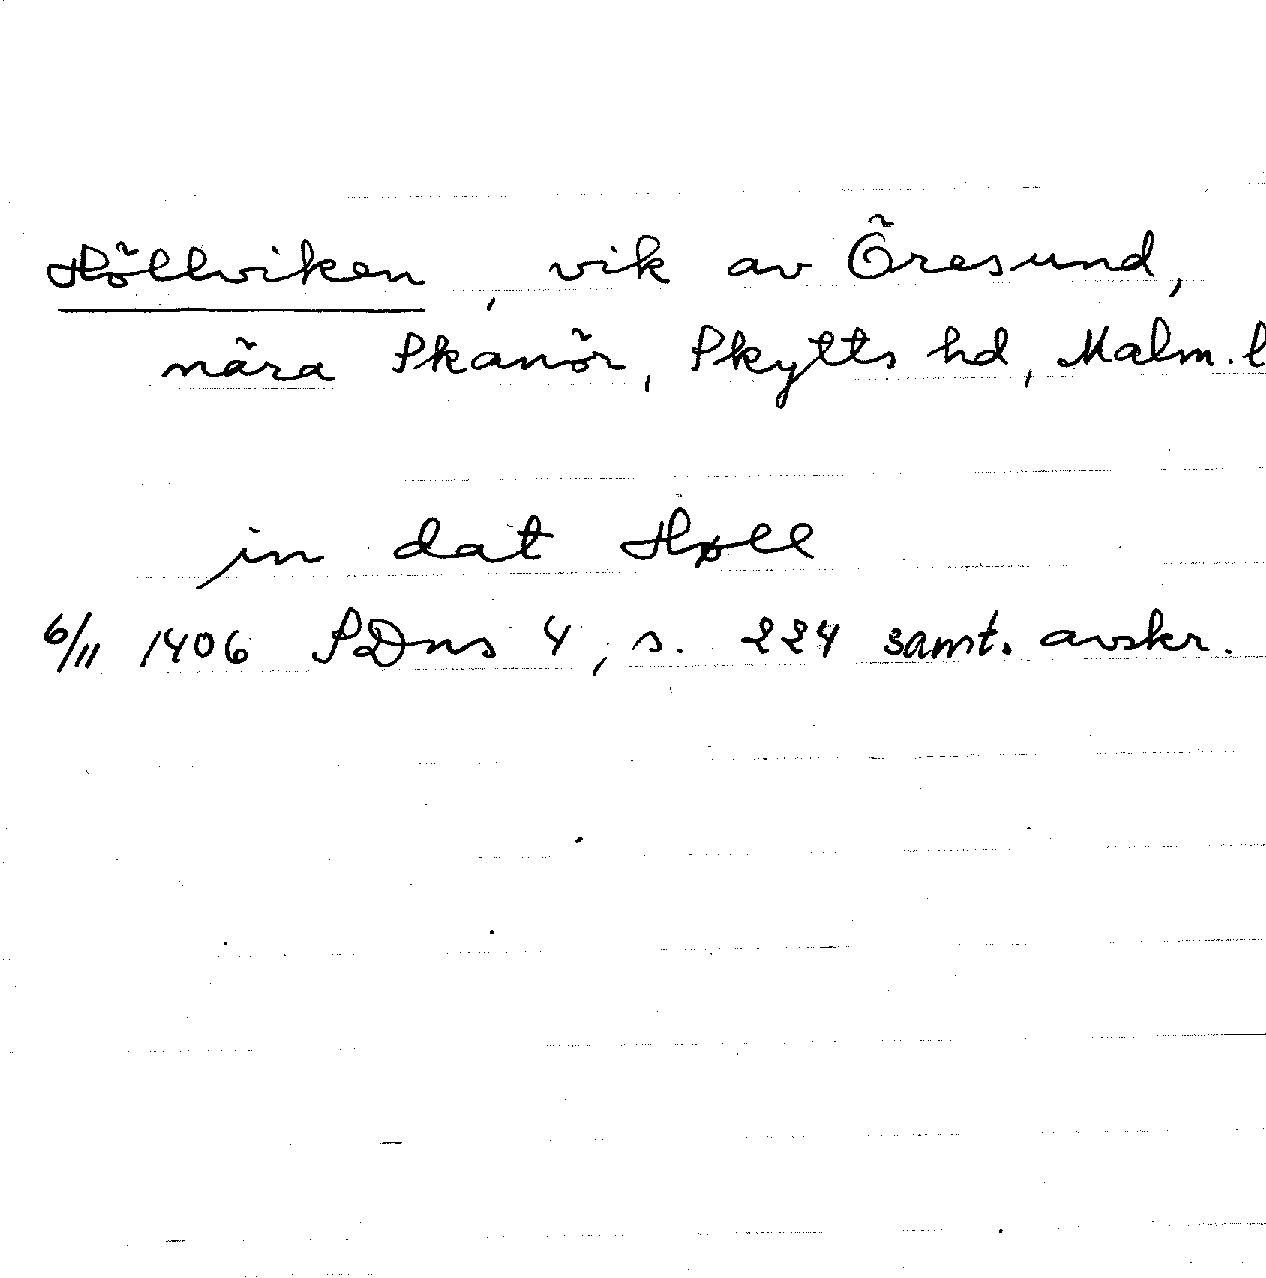 Höllviken, vik av Öresund,
nära Skanör, Skytts hd, Malm. l
in dat Høll
6/11 1406 SDns 4, s. 224 samt. avskr.